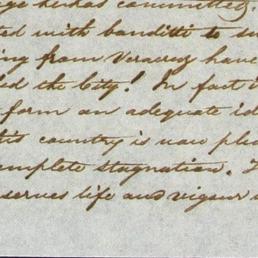 has committed,
ted with banditti to su
ing from Veracruz have
ed the City! In fact i
form an adequate id
this country is now plu
omplete stagnation. T
serves life and vigour